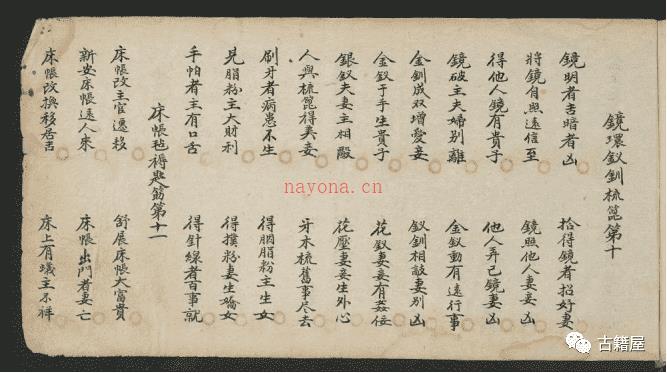 鏡環釵釧梳篦第十
鏡明者吉暗者凶 拾得鏡者招好妻
將鏡自照遠信至 鏡照他人妻妾凶
得他人鏡有貴子 他人弄己鏡妻凶
鏡破主夫婦別離 金釵動有遠行事
金釧成双增愛妾 釵釧相敲妻別凶
金釵于手生貴子 花釵妻妾有姦佞
銀釵夫妻主相毆 花壓妻妾生外心
人與梳篦得美妾 牙木梳舊事尽去
刷牙者病患不生 得胭脂粉主生女
見脂粉主大財利 得撲粉妻生嬌女
手帕者主有口舌 得針線者百事就
床帳毡褥匙筯第十一
床帳改主官遷移 舒展床帳大富貴
新安床帳遠人來 床帳出門者妻亡
床帳改換移居吉 床上有蟻主不祥
nayona.cn
古籍屋